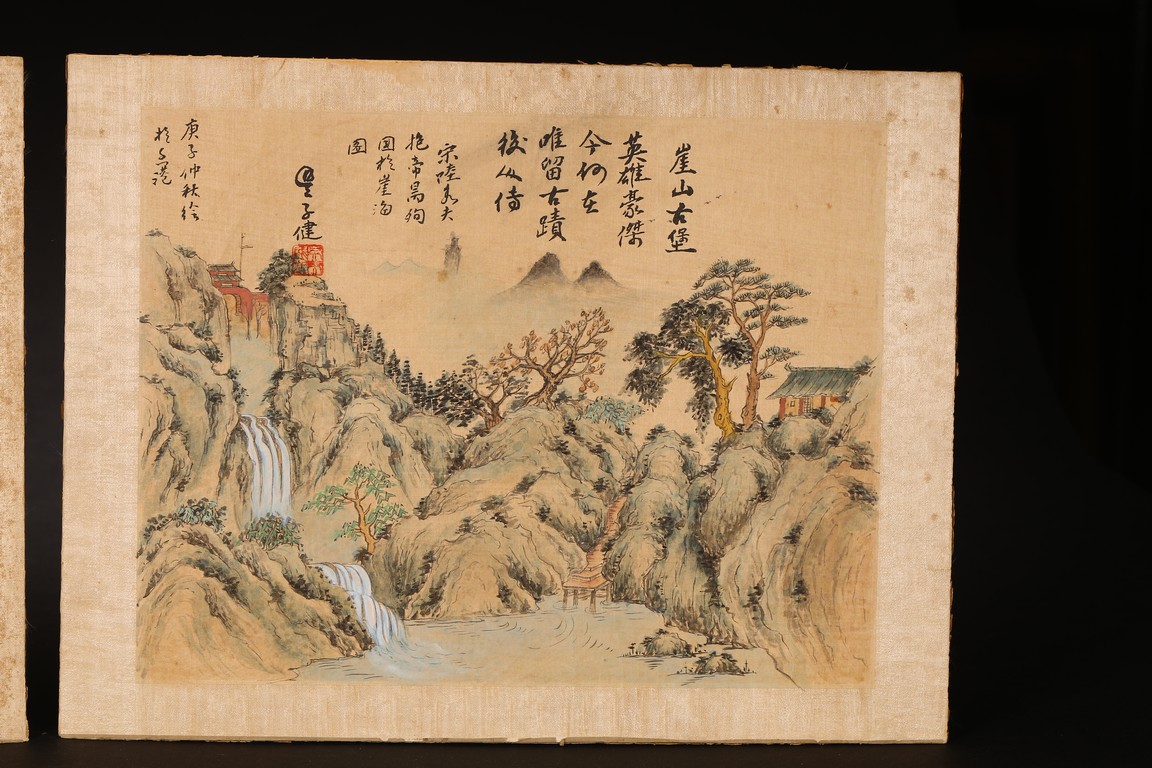 崖山古堡
英雄豪傑
今何在
唯留古蹟
後人侍
宋陸秀夫
抱帝昺殉
国於崖海
图
子健
庚子仲秋绘
於香港